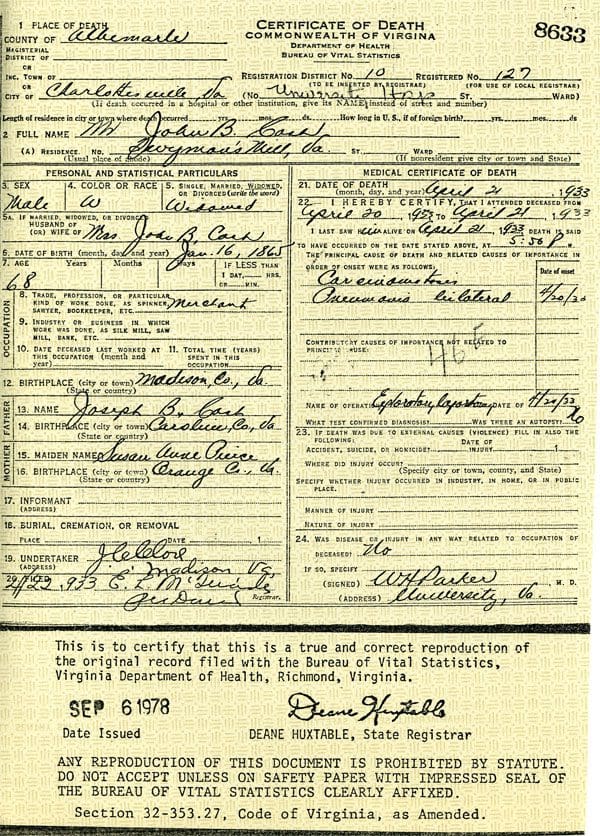 1 PLACE OF DEATH
COUNTY OF Albemarle
CERTIFICATE OF DEATH
COMMONWEALTH OF VIRGINIA
DEPARTMENT OF HEALTH
BUREAU OF VITAL STATISTICS
8633
MAGISTERIAL
DISTRICT OF
OR
INC. TOWN OF
OR
CITY OF Charlottesville, Va
REGISTRATION DISTRICT No. 10 REGISTERED No. 127
(TO BE INSERTED BY REGISTRAR) (FOR USE OF LOCAL REGISTRAR)
(No. University Hosp ST. WARD)
(If death occurred in a hospital or other institution, give its NAME instead of street and number)
Length of residence in city or town where death occurred yrs. mos. ds. How long in U. S., if of foreign birth? yrs. mos. ds.
2 FULL NAME Mr John B. Cash
(A) RESIDENCE. No. Mill, Va. ST. WARD
(Usual place of abode) (If nonresident give city or town and State)
PERSONAL AND STATISTICAL PARTICULARS
3. SEX
Male
4. COLOR OR RACE
W
5. SINGLE, MARRIED, WIDOWED, OR DIVORCED (write the word)
Widowed
5A. IF MARRIED, WIDOWED, OR DIVORCED
HUSBAND OF
(OR) WIFE OF Mrs John B. Cash
6. DATE OF BIRTH (month, day, and year) Jan. 16, 1865
7. AGE Years Months Days IF LESS THAN
1 DAY, HRS.
OR MIN.
68
OCCUPATION
8. TRADE, PROFESSION, OR PARTICULAR
KIND OF WORK DONE, AS SPINNER
SAWYER, BOOKKEEPER, ETC. Merchant
9. INDUSTRY OR BUSINESS IN WHICH
WORK WAS DONE, AS SILK MILL, SAW
MILL, BANK, ETC.
10. DATE DECEASED LAST WORKED AT
THIS OCCUPATION (month and
year)
11. TOTAL TIME (YEARS)
SPENT IN THIS
OCCUPATION
12. BIRTHPLACE (city or town) Madison Co., Va.
(State or country)
FATHER
13. NAME Joseph B. Cash
14. BIRTHPLACE (city or town) Caroline, Co, Va
(State or country)
MOTHER
15. MAIDEN NAME Susan Anne
16. BIRTHPLACE (city or town) Orange Co., Va.
(State or country)
17. INFORMANT
(ADDRESS)
18. BURIAL, CREMATION, OR REMOVAL
PLACE DATE 1
19. UNDERTAKER
(ADDRESS) Madison Va.
20. FILED 4/22, 1933 E. L.
Registrar.
MEDICAL CERTIFICATE OF DEATH
21. DATE OF DEATH
(month, day, and year) April 21, 1933
22. I HEREBY CERTIFY, THAT I ATTENDED DECEASED FROM
April 20, 1933 TO April 21, 1933
I LAST SAW HIM ALIVE ON April 21, 1933 DEATH IS SAID
TO HAVE OCCURRED ON THE DATE STATED ABOVE, AT 5:50 P M.
THE PRINCIPAL CAUSE OF DEATH AND RELATED CAUSES OF IMPORTANCE IN
ORDER OF ONSET WERE AS FOLLOWS:
Date of onset
Carcinomatosis
Pneumonia bilateral 4/20/33
CONTRIBUTORY CAUSES OF IMPORTANCE NOT RELATED TO
PRINCIPAL CAUSE:
NAME OF OPERATION Exploratory laparotomy DATE OF 4/20/33
WHAT TEST CONFIRMED DIAGNOSIS? WAS THERE AN AUTOPSY? No
23. IF DEATH WAS DUE TO EXTERNAL CAUSES (VIOLENCE) FILL IN ALSO THE
FOLLOWING:
ACCIDENT, SUICIDE, OR HOMICIDE? DATE OF INJURY 1
WHERE DID INJURY OCCUR?
(Specify city or town, county, and State)
SPECIFY WHETHER INJURY OCCURRED IN INDUSTRY, IN HOME, OR IN PUBLIC
PLACE.
MANNER OF INJURY
NATURE OF INJURY
24. WAS DISEASE OR INJURY IN ANY WAY RELATED TO OCCUPATION OF
DECEASED? No
IF SO, SPECIFY
(SIGNED) W H Parker M. D.
(ADDRESS) University, Va.
This is to certify that this is a true and correct reproduction of
the original record filed with the Bureau of Vital Statistics,
Virginia Department of Health, Richmond, Virginia.
SEP 6 1978
Deane Huxtable
Date Issued
DEANE HUXTABLE, State Registrar
ANY REPRODUCTION OF THIS DOCUMENT IS PROHIBITED BY STATUTE.
DO NOT ACCEPT UNLESS ON SAFETY PAPER WITH IMPRESSED SEAL OF
THE BUREAU OF VITAL STATISTICS CLEARLY AFFIXED.
Section 32-353.27, Code of Virginia, as Amended.